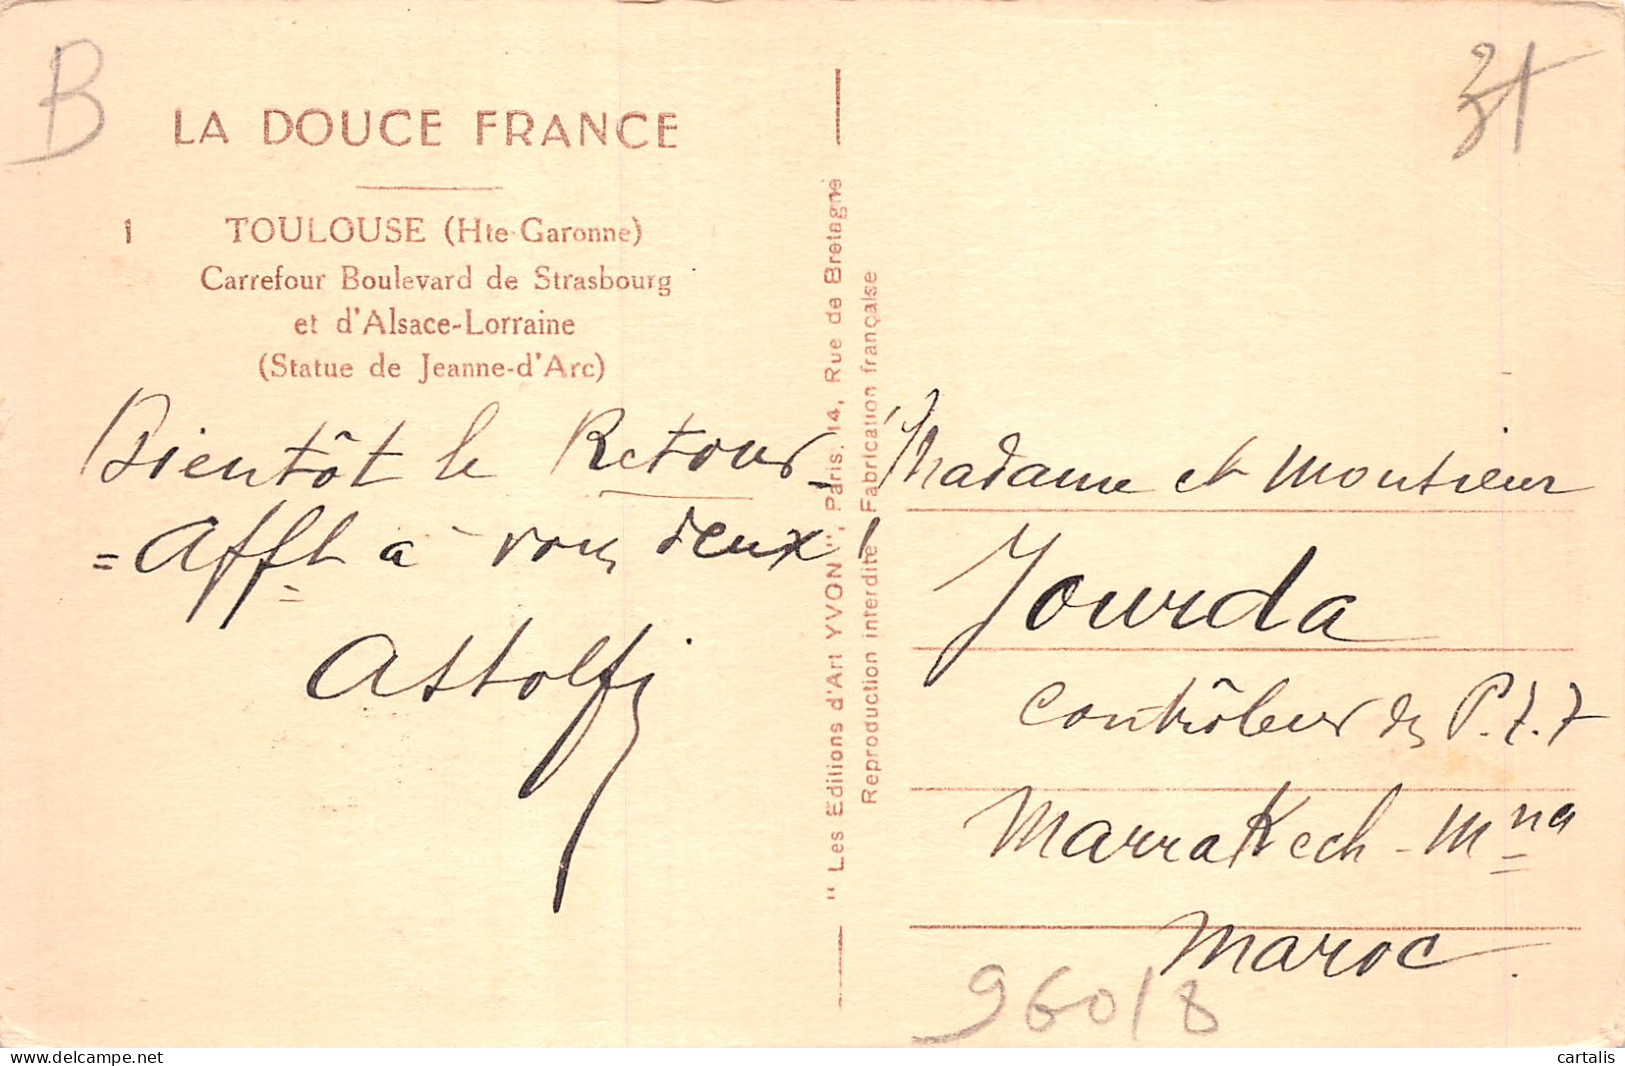 B
31
LA DOUCE FRANCE
1 TOULOUSE (Hte-Garonne)
Carrefour Boulevard de Strasbourg
et d'Alsace-Lorraine
(Statue de Jeanne-d'Arc)
Bientôt le Retour
= Afft à vous deux !
Astolfi
"Les Editions d'Art YVON", Paris. 14, Rue de Bretagne
Reproduction interdite Fabrication française
Madame et Monsieur
Jourda
Contrôleur des P.T.T
Marrakech - Mna
Maroc.
96018
delcampe.net
cartalis